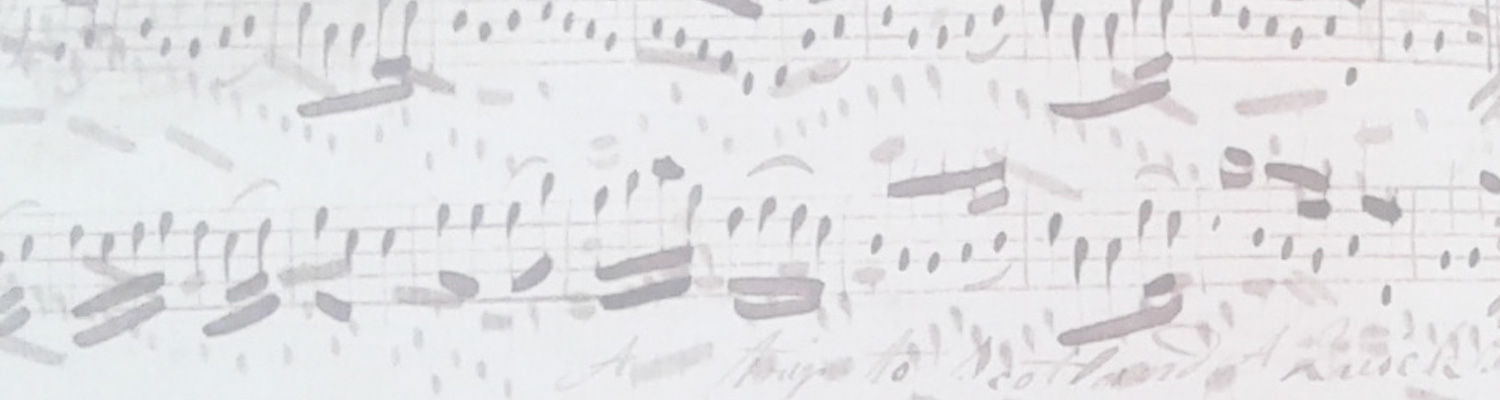 A trip to Scotland A